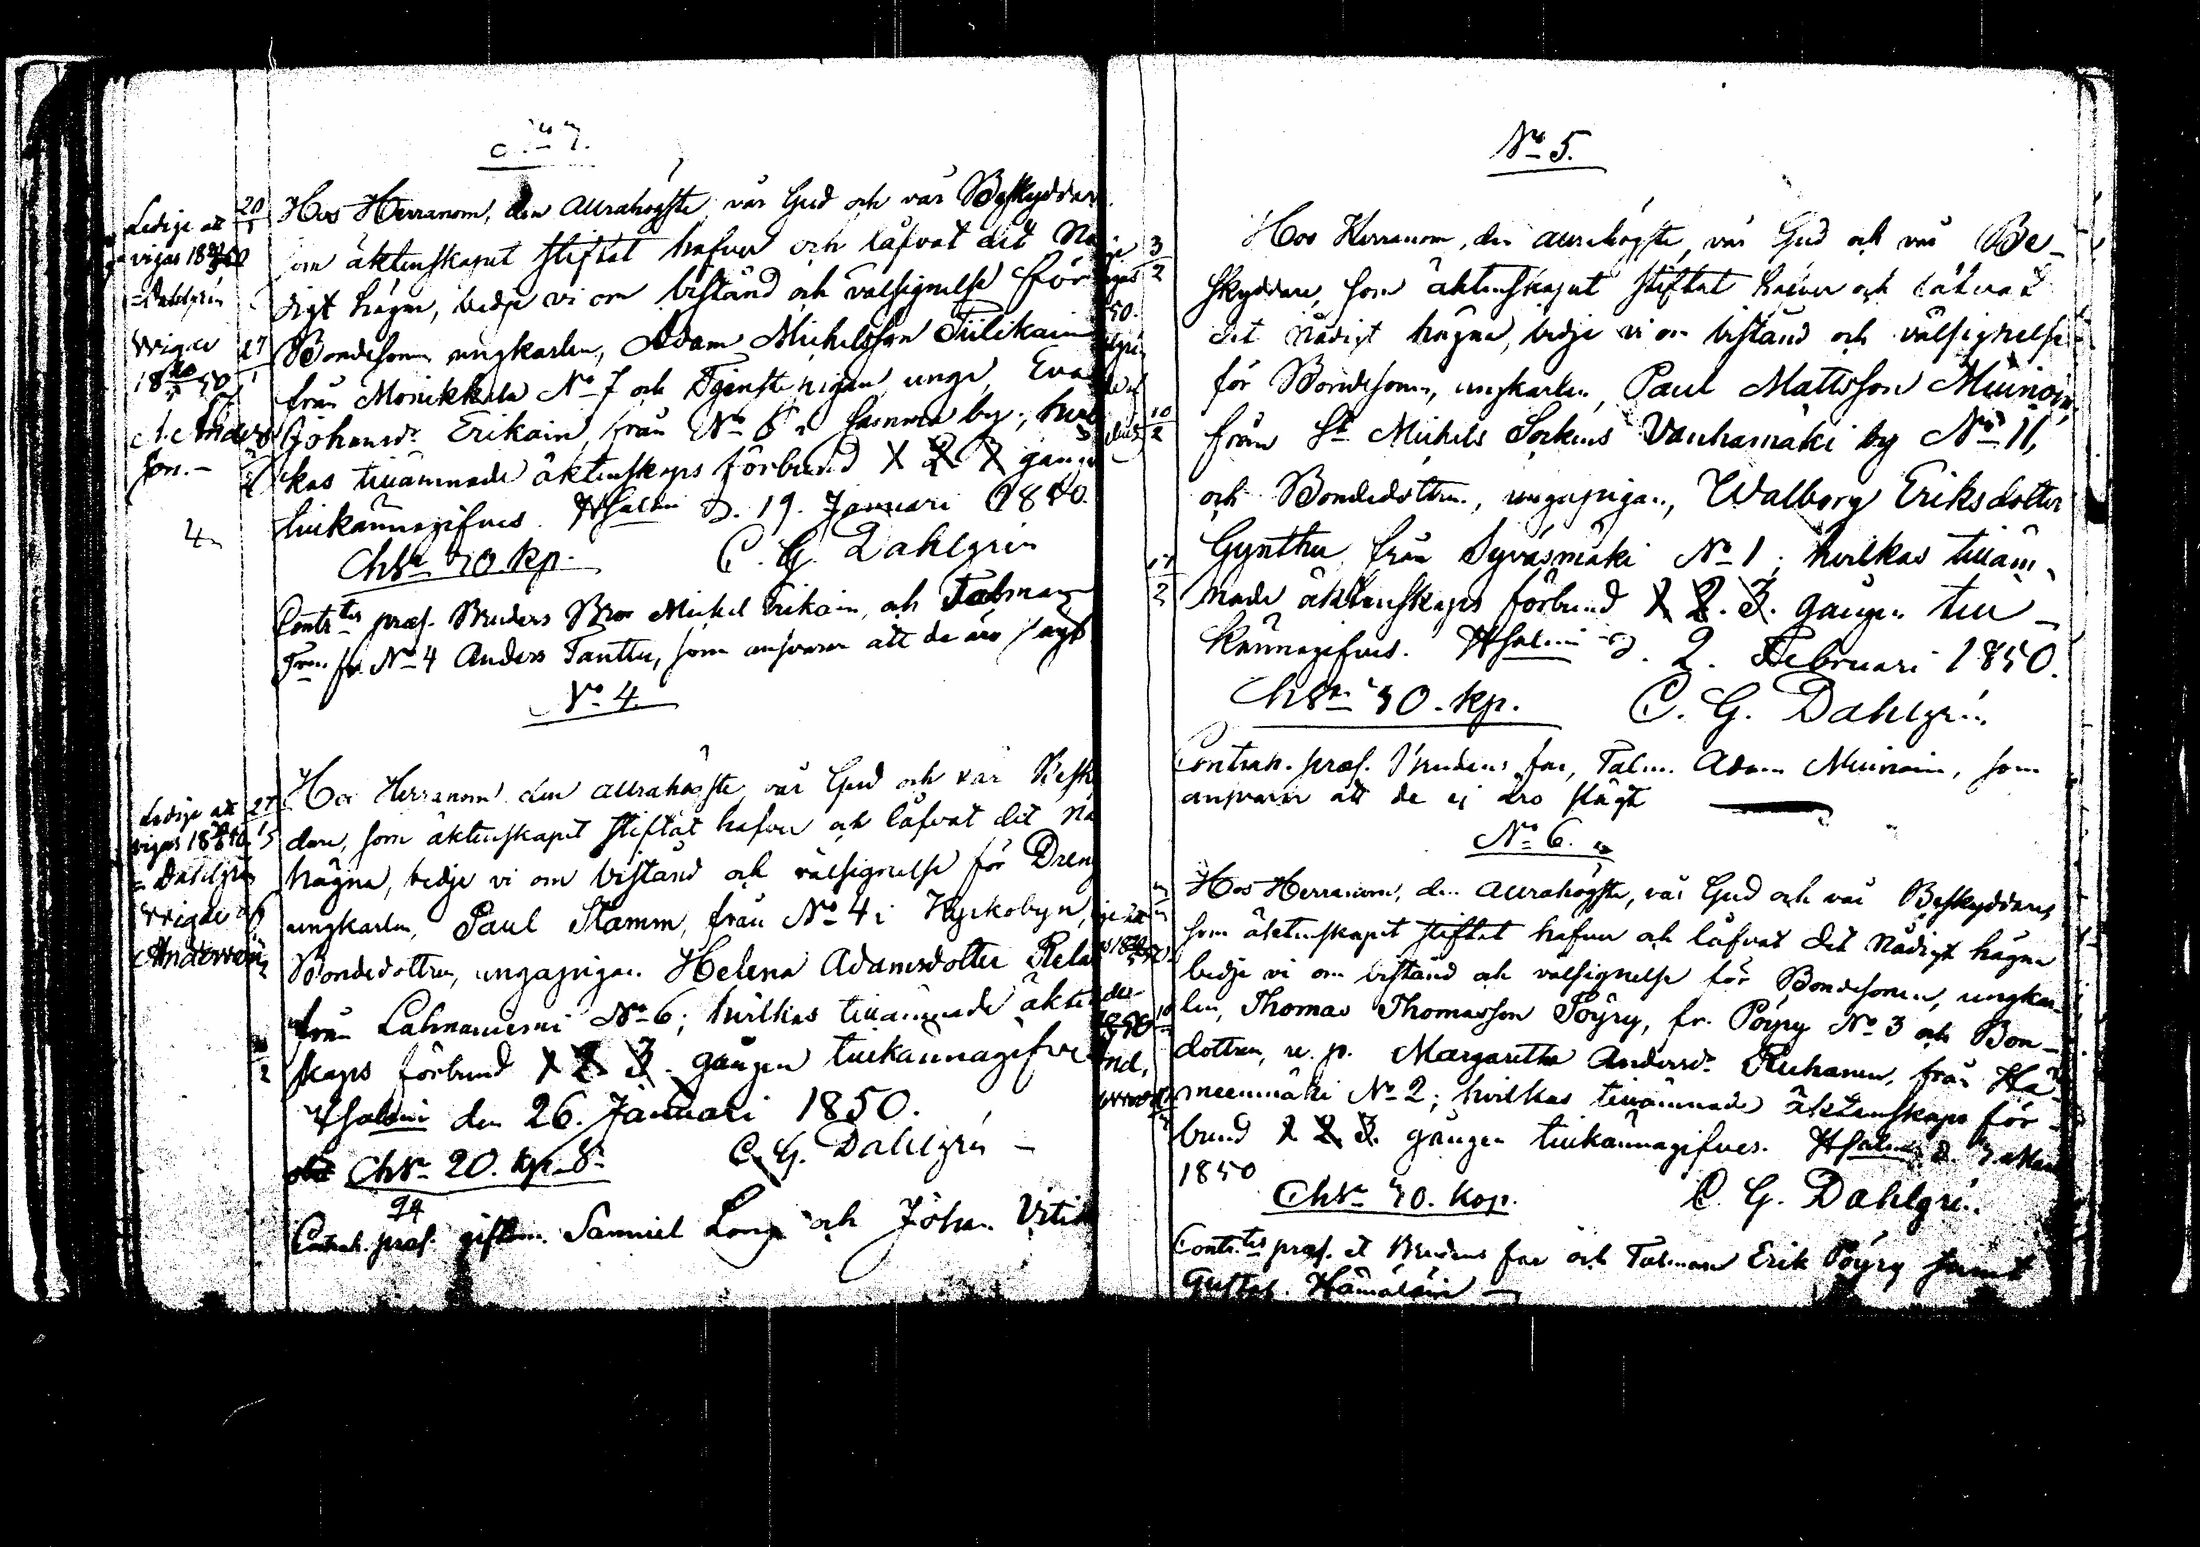 Hos Herranom, den allrahögste vår Gud och vår Beskyddar
om äktenskapet stiftat hafver och låfvat det Nå
digt hägna, bedje vi om bistånd och välsignelse för
Bondesonen ungkarlen, Adam Michelsson Tiilikain
från Monikkala No 7 och Tjenstepigan unge, Eva
Johansdr Erikain, från No 6 i samma by; hvil
kas tillämnade äktenskaps förbund 1 2 3 gången
tillkännagifves. Hfsalmi d. 19. Januari 1850.
C. G. Dahlgrén
Chsr 30. kp.
Contrtes præs. Brudens Bror Michel Erikain, och Talman
fr. No 4 Anders Tanttu, som ansvarar att de äro
No 4.
Ledige att
vigas
Dahlgrén
Vigde
27
Hos Herranom den allrahögste vår Gud och vår Besk
dare, som äktenskapet stiftat hafver och låfvat det nå
hägna, bedje vi om bistånd och välsignelse för Dren
ungkarlen, Paul Stamm, från No 4 i Kyrkobyn,
Bondedottren, ungapigan Helena Adamsdotter Rela
från Lahnaniemi No 6; hvilkas tillämnade äkten
skaps förbund 1 2 3. gången tillkännagifve
Hfsalmi den 26. Januari 1850.
Chsr 20. kp. S. C. G. Dahlgrén
Contrah. præs. giftom. Samuel Long och Johan
No 5.
3
2
10
2
17
2
Hos Herranom, den allrahögste, vår Gud och vår Be-
skyddare, som äktenskapet stiftat hafver och låfvat
det nådigt hägna, bedje vi om bistånd och välsignelse
för Bondesonen, ungkarlen, Paul Mattsson Muinoin
från St Michels Sockens Vanhamäki by No 11,
och Bondedottren, ungapigan, Walborg Eriksdotter
Gynther från Syväsmäki No 1; hvilkas tilläm-
nade äktenskaps förbund 1 2. 3. gången till-
kännagifves. Hfsalmi d. 2. Februari 1850.
Chsr 30. kp. C. G. Dahlgrén
Contrah. præs. Brudens far, Talm. Adam Muinoin, som
ansvarar att de ej äro slägt
No 6.
Hos Herranom, den allrahögste, vår Gud och vår Beskyddare,
som äktenskapet stiftat hafver och låfvat det nådigt hägna
bedje vi om bistånd och välsignelse för Bondesonen, ungkar-
len, Thomas Thomasson Pöyry, fr. Pöyry No 3 och Bon-
dottren, u. p. Margaretha Andersdr Ruhanen, från Hä-
meenmäki No 2; hvilkas tillämnade äktenskaps för-
bund 1 2 3. gången tillkännagifves. Hfsalmi d.
1850
Chsr 30. kop. C. G. Dahlgrén
Contr.tes præs. et Brudens far och Talman Erik Pöyry samt
Gustaf Hämäläin